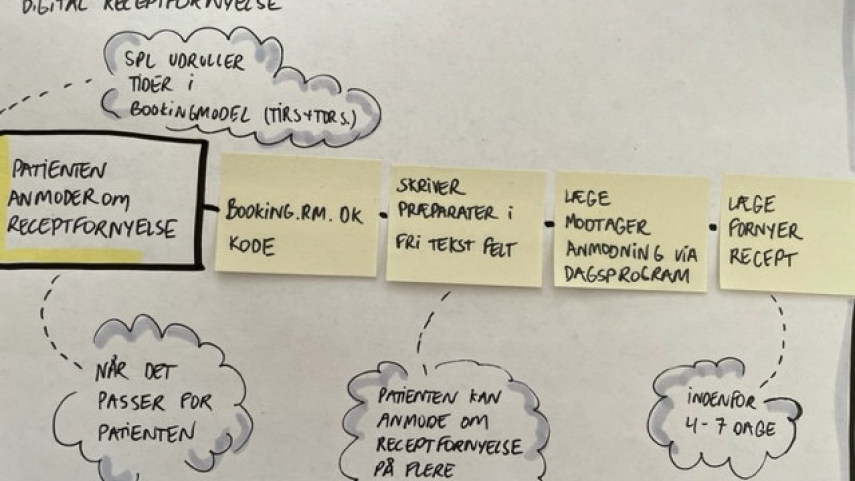 DIGITAL RECEPTFORNYELSE
SPL UDRULLER
TIDER i
BOOKINGMODEL (TIRS+TORS.)
PATIENTEN
ANMODER om
RECEPTFORNYELSE
BOOKING.RM.DK
KODE
SKRIVER
PRÆPARATER i
FRI TEKST FELT
LÆGE
MODTAGER
ANMODNING VIA
DAGSPROGRAM
LÆGE
FORNYER
RECEPT
NÅR DET
PASSER FOR
PATIENTEN
PATIENTEN KAN
ANMODE OM
RECEPTFORNYELSE
PÅ FLERE
INDENFOR
4-7 DAGE